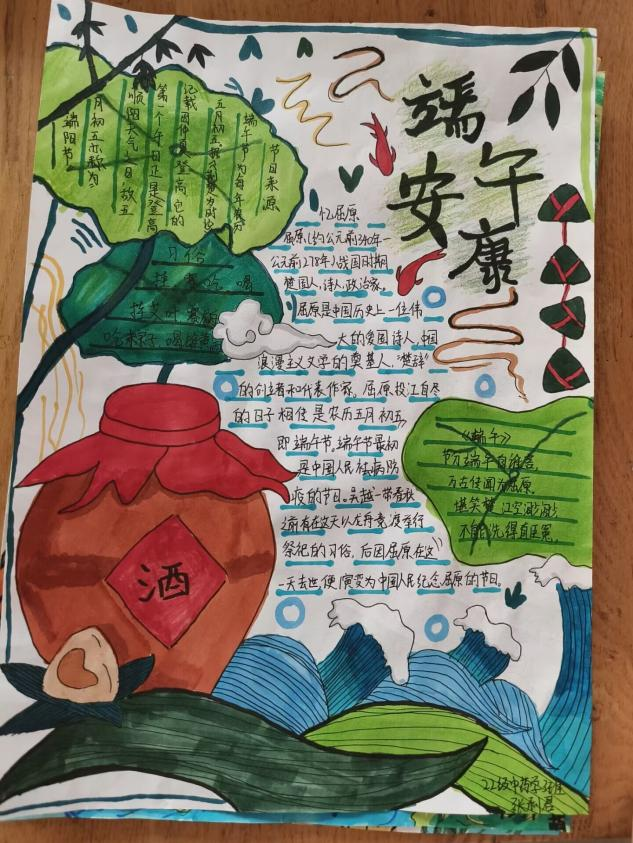 端午
安康
节日来源
端午节为每年农历
五月初五
记载因仲夏登高
第一个午日正是登高
顺阳天气之日故五
月初五亦称为
端阳节。
习俗
挂艾叶
忆屈原
屈原(约公元前340年一
公元前278年),战国时期
楚国人,诗人、政治家。
屈原是中国历史上一位伟
大的爱国诗人,中国
浪漫主义文学的奠基人,“楚辞”
的创立者和代表作家。屈原投江自尽
的日子相传是农历五月初五,
即端午节。端午节最初
是中国人民祛病防
疫的节日。吴越一带春秋
之前有在这天以龙舟竞渡举行
祭祀的习俗,后因屈原在这
一天去世,便演变为中国人民纪念屈原的节日。
《端午》
节分端午自谁言,
万古传闻为屈原。
堪笑楚江空渺渺,
不能洗得直臣冤。
酒
22级中药学